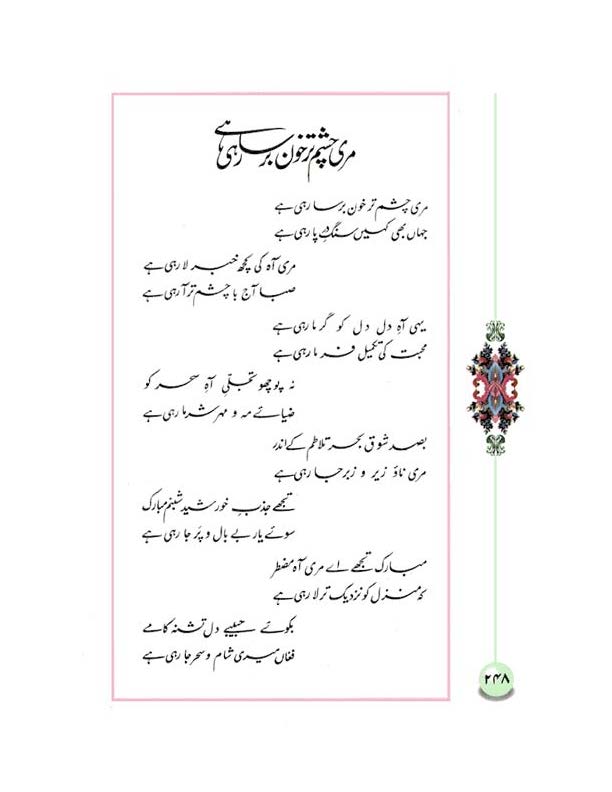 مری چشمِ تر خون برسا رہی ہے
مری چشم تر خون برسا رہی ہے
جہاں بھی کہیں سنگِ در پا رہی ہے
مری آہ کی کچھ خبر لا رہی ہے
صبا آج با چشم تر آ رہی ہے
یہی آہِ دل دل کو گرما رہی ہے
محبت کی تکمیل فرما رہی ہے
نہ پوچھو تجلّیِ آہِ سحر کو
ضیائے مہ و مہر شرما رہی ہے
بصد شوق بحرِ تلاطم کے اندر
مری ناؤ زیر و زبر جا رہی ہے
تجھے جذبِ خورشید شبنم مبارک
سوئے یار بے بال و پَر جا رہی ہے
مبارک تجھے اے مری آہ مضطر
کہ منزل کو نزدیک تر لا رہی ہے
بکوئے حبیبے دل تشنہ کامے
فغاں میری شام و سحر جا رہی ہے
۲۴۸